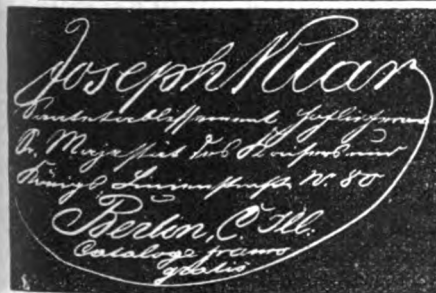 Joseph Klar
Samenetablissement Hoflieferant
Sr. Majestät des Kaisers und
Königs, Linienstraße N. 80
Berlin, C
Cataloge franco
gratis